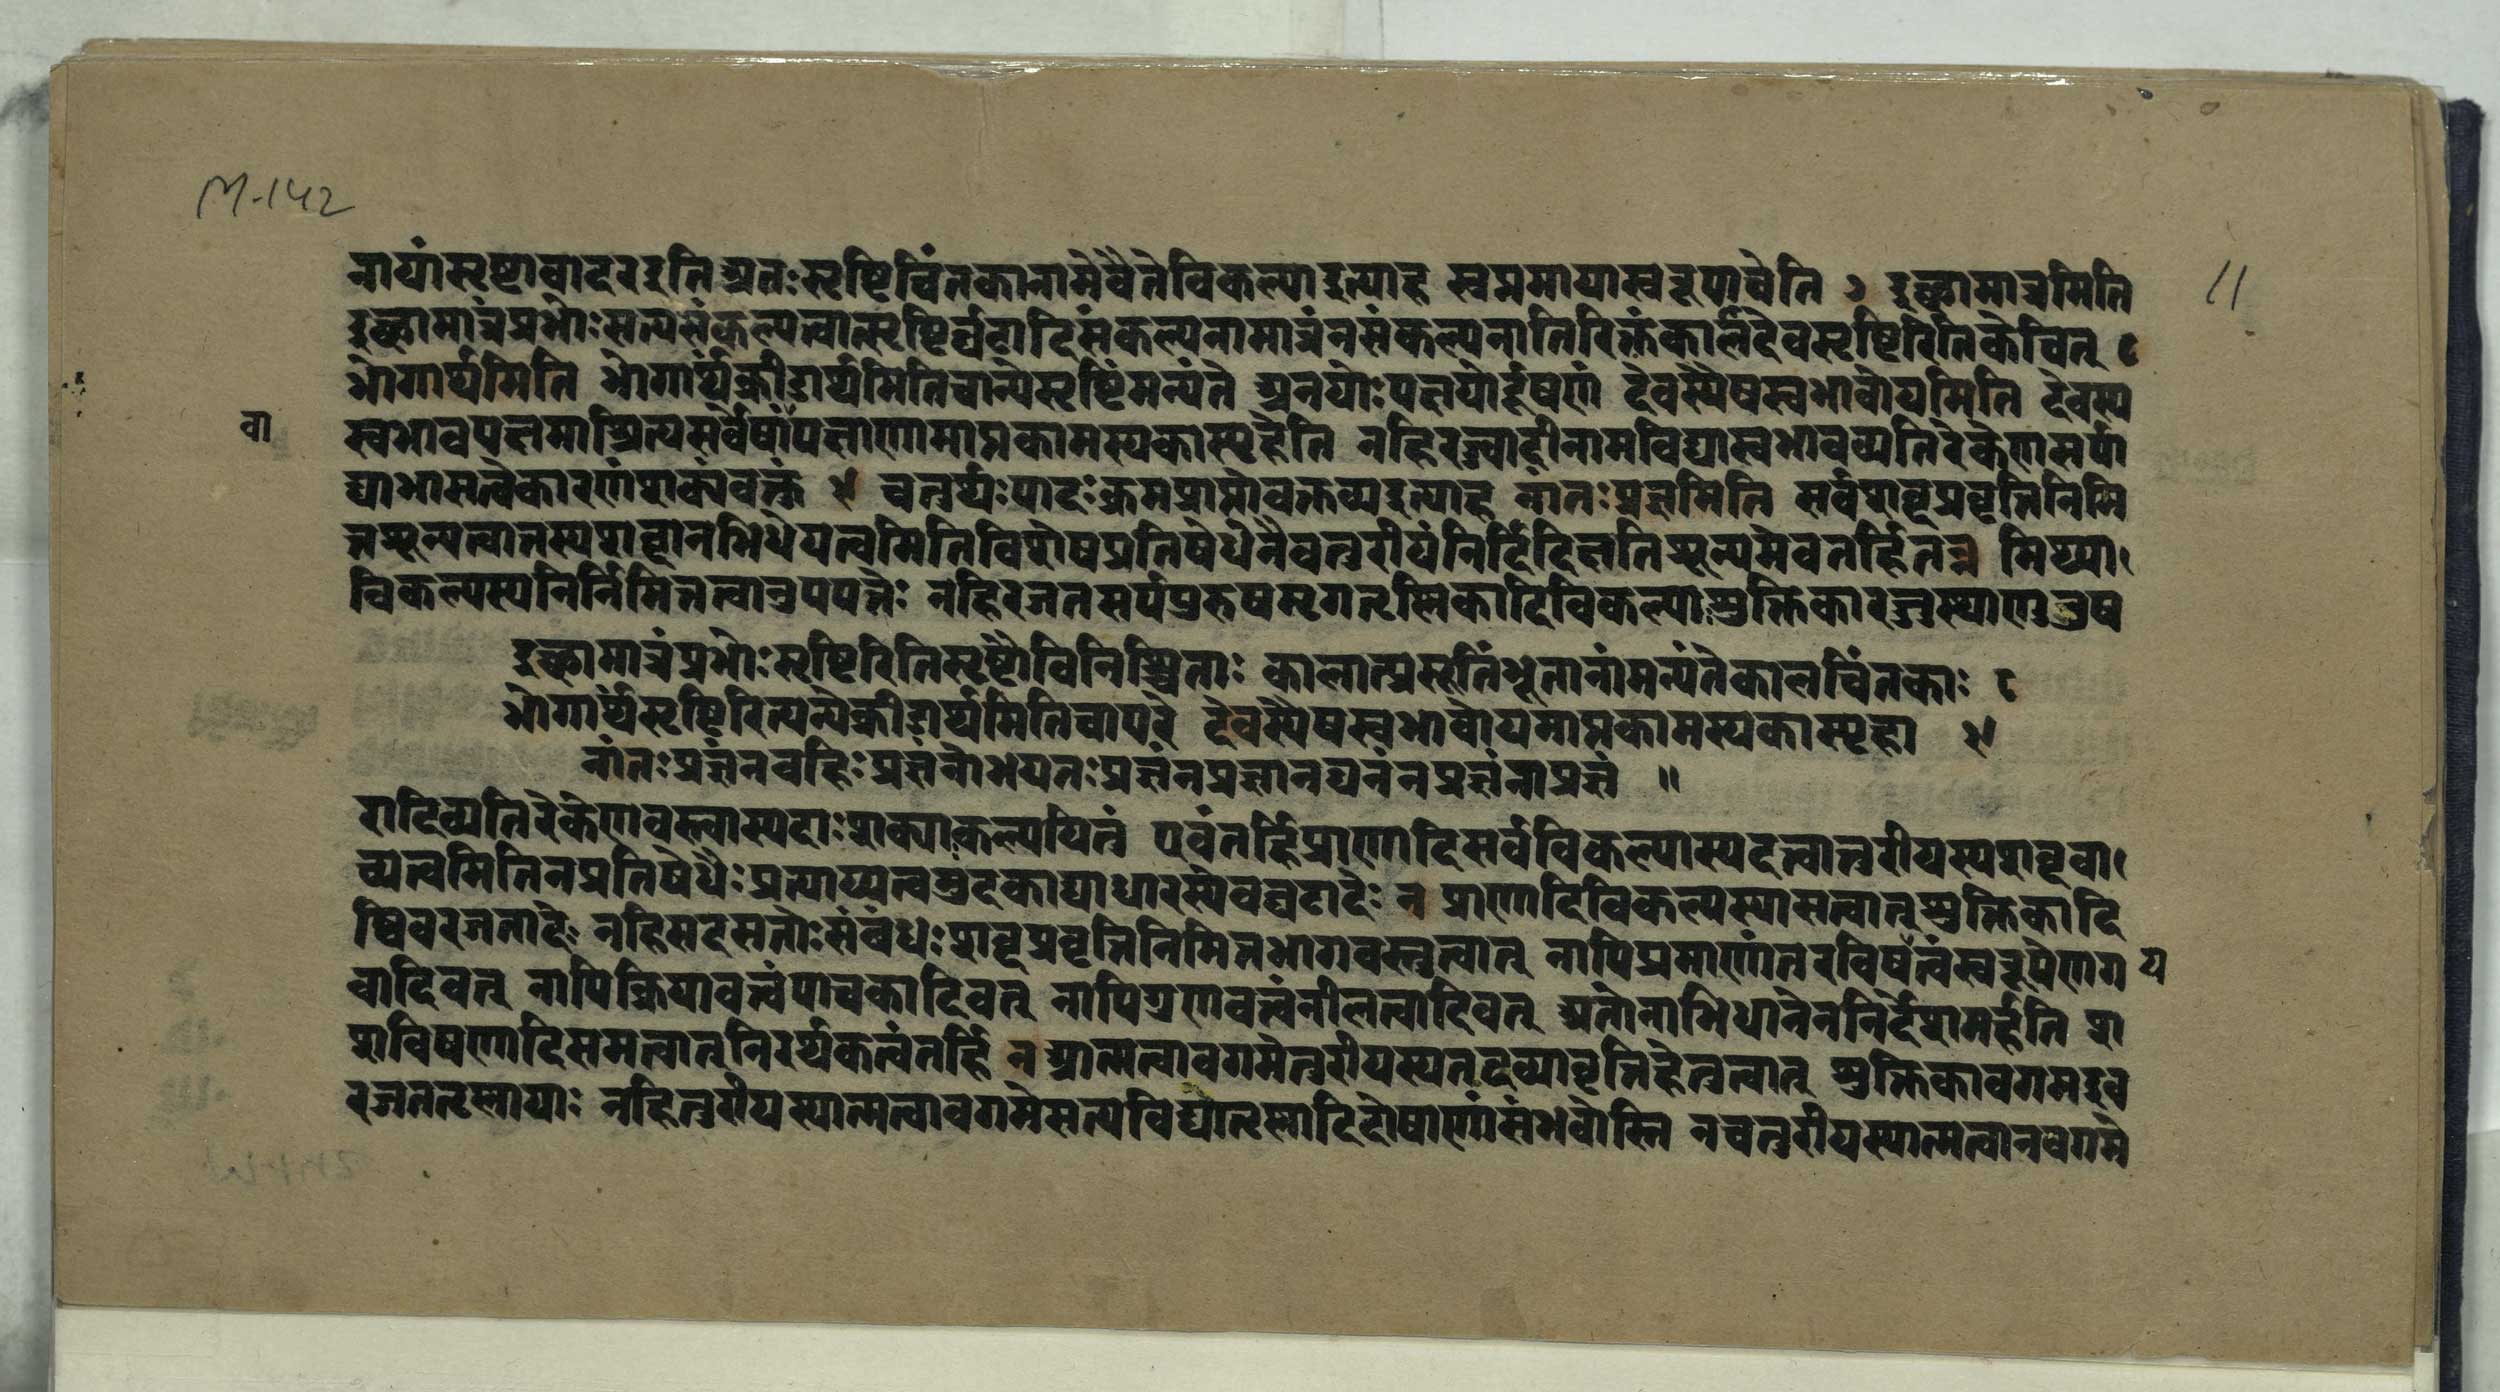 M-142
11
नायांसृष्टावादरइतिअतःसृष्टिचिंतकानामेवैतेविकल्पाइत्याह स्वप्नमायास्वरूपावेति ७ इच्छामात्रमिति
इच्छामात्रंप्रभोःसत्यसंकल्पत्वात्सृष्टिर्घटादिसंकल्पनामात्रंनसंकल्पनातिरिक्तंकालदेवसृष्टिरितिकेचित् ८
भोगार्थमिति भोगार्थंक्रीडार्थमितिचान्येसृष्टिंमन्यंते अनयोःपक्षयोर्दूषणं देवस्यैषस्वभावोयमिति देवस्य
वा
स्वभावपक्षमाश्रित्यसर्वेषांपक्षाणामाप्तकामस्यकास्पृहेति नहिरज्ज्वादीनामविद्यास्वभावव्यतिरेकेणसर्पा
द्याभासत्वेकारणंशक्यंवक्तुं ९ चतुर्थःपादःक्रमप्राप्तोवक्तव्यइत्याह नांतःप्रज्ञमिति सर्वशब्दप्रवृत्तिनिमि
त्तशून्यत्वात्तस्यशब्दानभिधेयत्वमितिविशेषप्रतिषेधेनैवतुरीयंनिर्दिदिक्षतिशून्यमेवतर्हितन्न मिथ्या
विकल्पस्यनिर्निमित्तत्वानुपपत्तेः नहिरजतसर्पपुरुषमृगतृष्णिकादिविकल्पाःशुक्तिकारज्जुस्थाणुऊष
इच्छामात्रंप्रभोःसृष्टिरितिसृष्टौविनिश्चिताः कालात्प्रसूतिंभूतानांमन्यंतेकालचिंतकाः ८
भोगार्थंसृष्टिरित्यन्येक्रीडार्थमितिचापरे देवस्यैषस्वभावोयमाप्तकामस्यकास्पृहा ९
नांतःप्रज्ञंनबहिःप्रज्ञंनोभयतःप्रज्ञंनप्रज्ञानघनंनप्रज्ञंनाप्रज्ञं ॥
रादिव्यतिरेकेणावस्त्वास्पदाःशक्याःकल्पयितुं एवंतर्हिप्राणादिसर्वविकल्पास्पदत्वात्तुरीयस्यशब्दवा
च्यत्वमितिनप्रतिषेधैःप्रत्याय्यत्वमुदकाद्याधारस्येवघटादेः न प्राणादिविकल्पस्यासत्वात्शुक्तिकादि
ष्विवरजतादेः नहिसदसतोःसंबंधःशब्दप्रवृत्तिनिमित्तभागवस्तुत्वात् नापिप्रमाणांतरविषत्वंस्वरूपेणग
य
वादिवत् नापिक्रियावत्वंपाचकादिवत् नापिगुणवत्वंनीलत्वादिवत् अतोनाभिधानेननिर्देशमर्हति श
शविषाणादिसमत्वात्निरर्थकत्वंतर्हि न आत्मत्वावगमेतुरीयस्यतद्व्यावृत्तिहेतुत्वात् शुक्तिकावगमइव
रजततृष्णायाः नहितुरीयस्यात्मत्वावगमेसत्यविद्यातृष्णादिदोषाणांसंभवोस्ति नचतुरीयस्यात्मत्वानवगमे